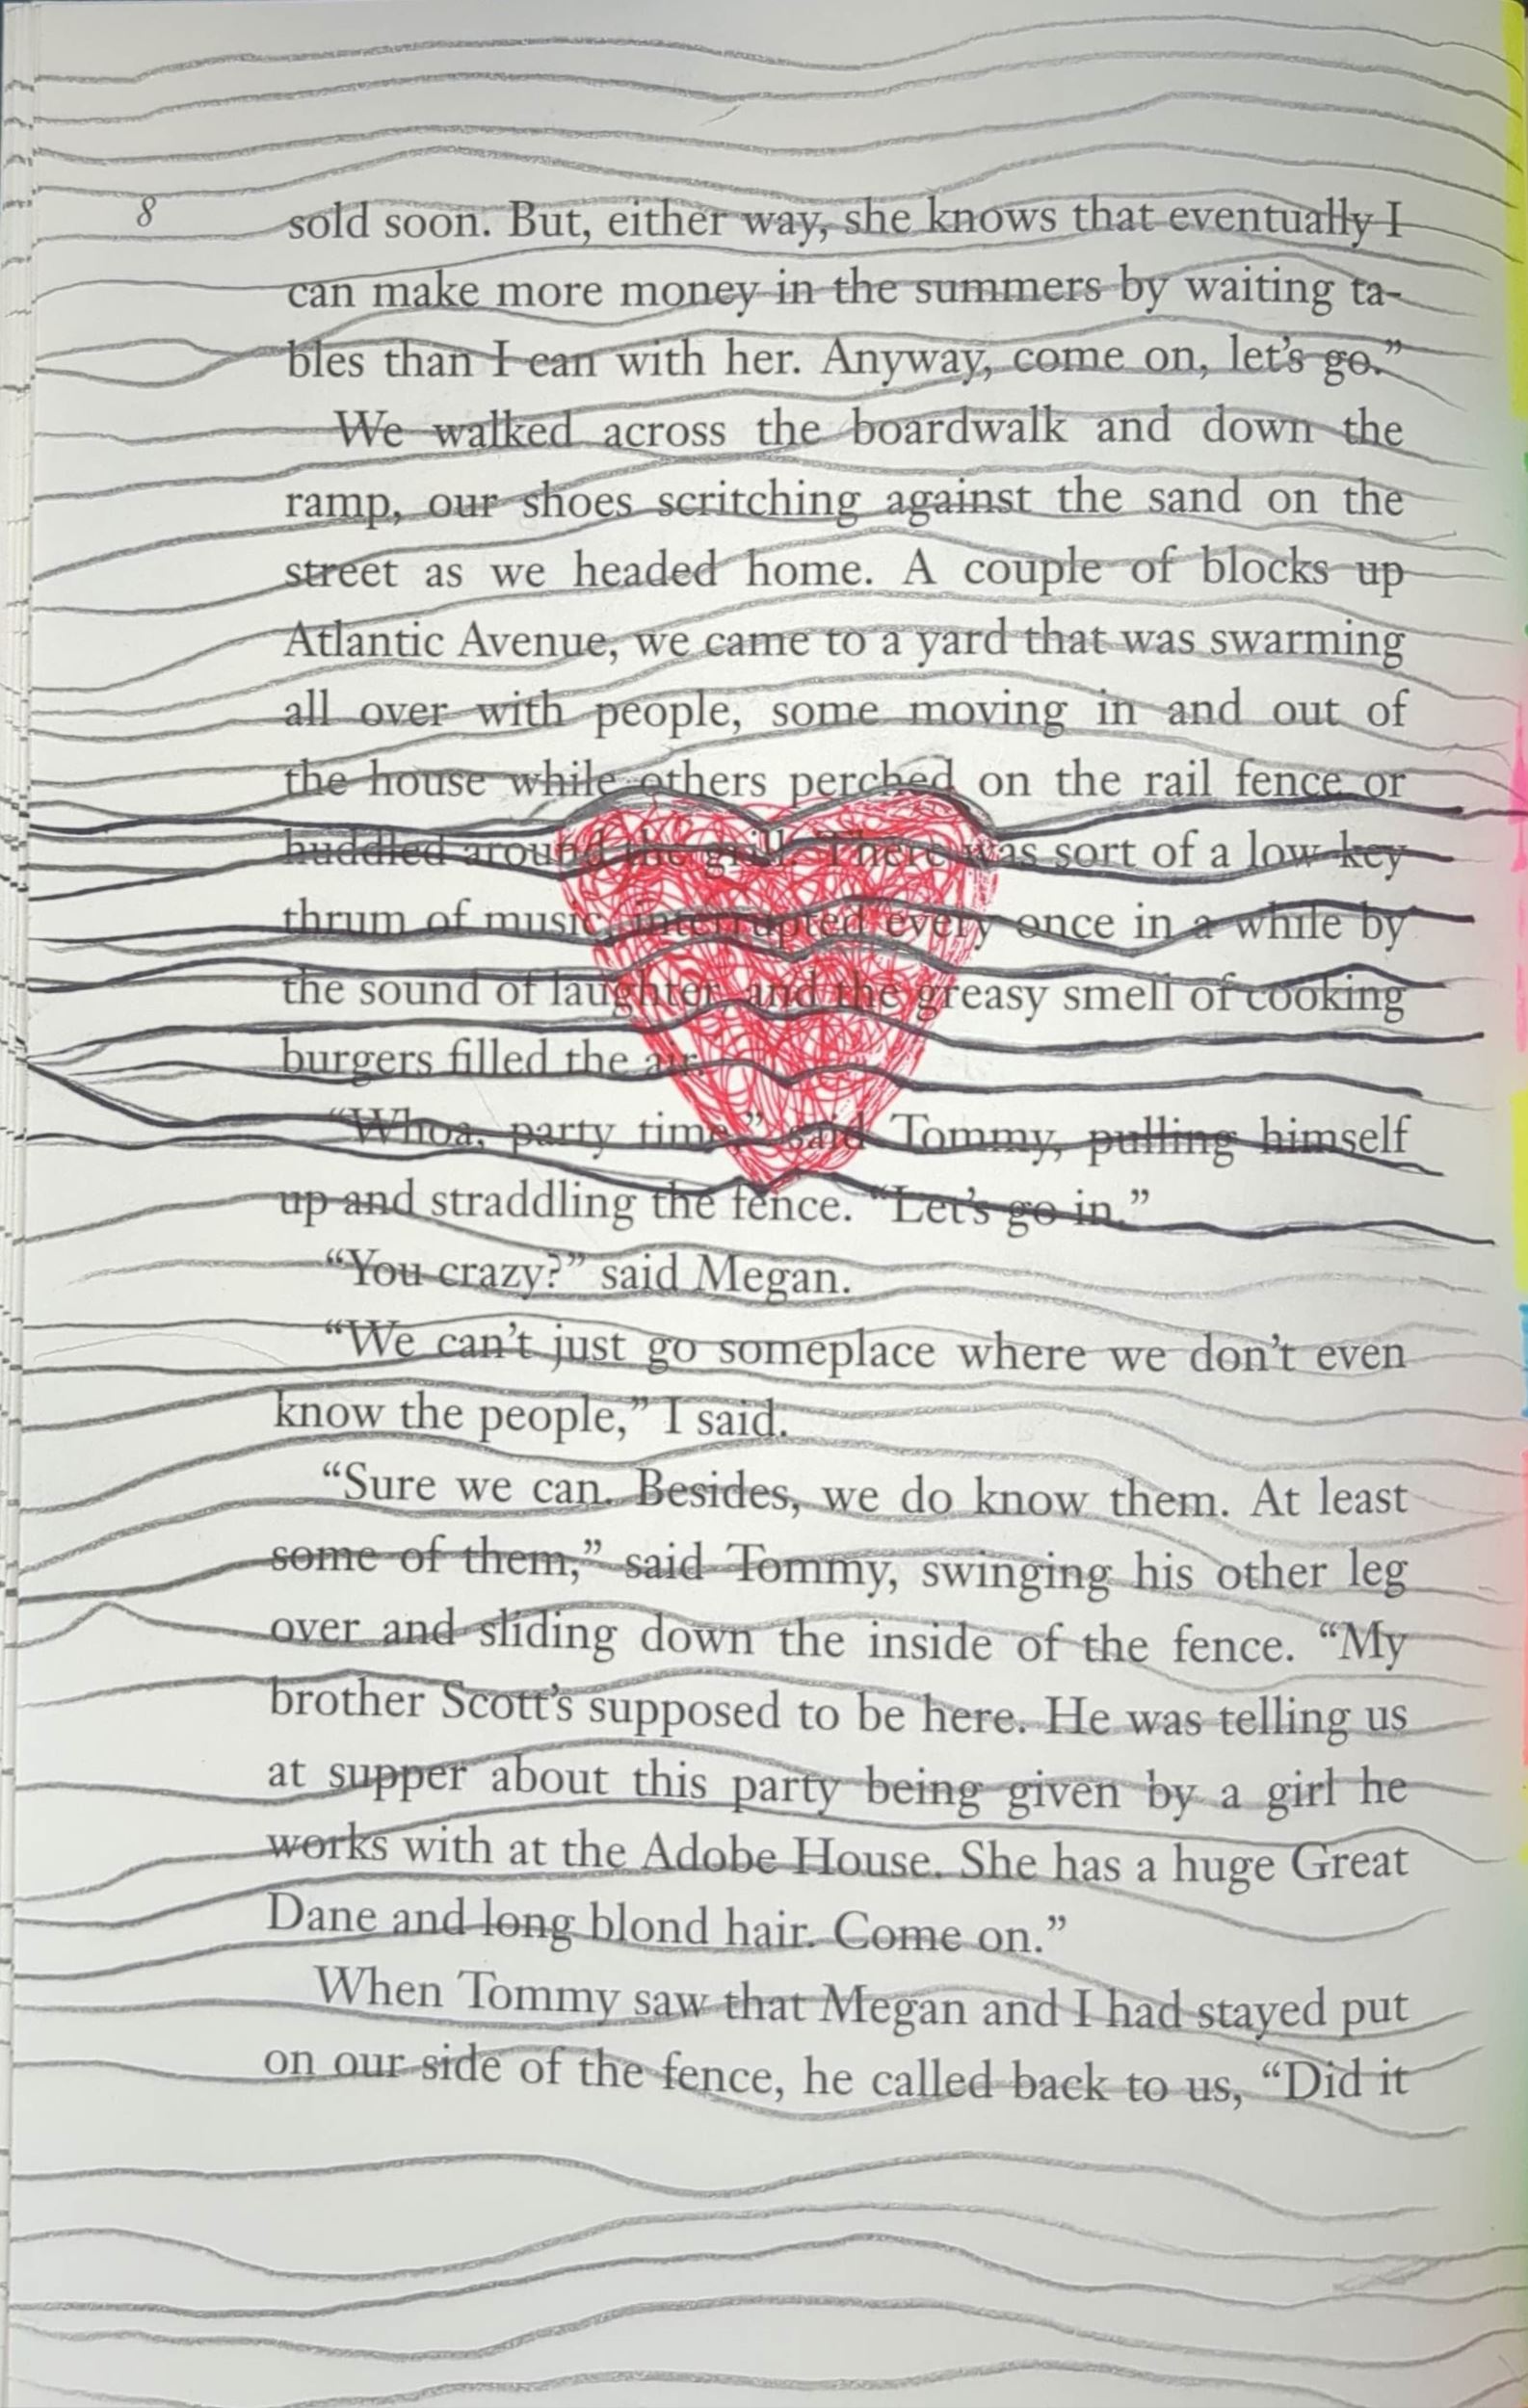 8
sold soon. But, either way, she knows that eventually I
can make more money in the summers by waiting ta-
bles than I can with her. Anyway, come on, let's go.”
We walked across the boardwalk and down the
ramp, our shoes scritching against the sand on the
street as we headed home. A couple of blocks up
Atlantic Avenue, we came to a yard that was swarming
all over with people, some moving in and out of
the house while others perched on the rail fence or
huddled around the grill. There was sort of a low-key
thrum of music, interrupted every once in a while by
the sound of laughter, and the greasy smell of cooking
burgers filled the air.
“Whoa, party time,” said Tommy, pulling himself
up and straddling the fence. “Let's go in.”
“You crazy?” said Megan.
“We can't just go someplace where we don't even
know the people,” I said.
“Sure we can. Besides, we do know them. At least
some of them,” said Tommy, swinging his other leg
over and sliding down the inside of the fence. “My
brother Scott's supposed to be here. He was telling us
at supper about this party being given by a girl he
works with at the Adobe House. She has a huge Great
Dane and long blond hair. Come on.”
When Tommy saw that Megan and I had stayed put
on our side of the fence, he called back to us, “Did it